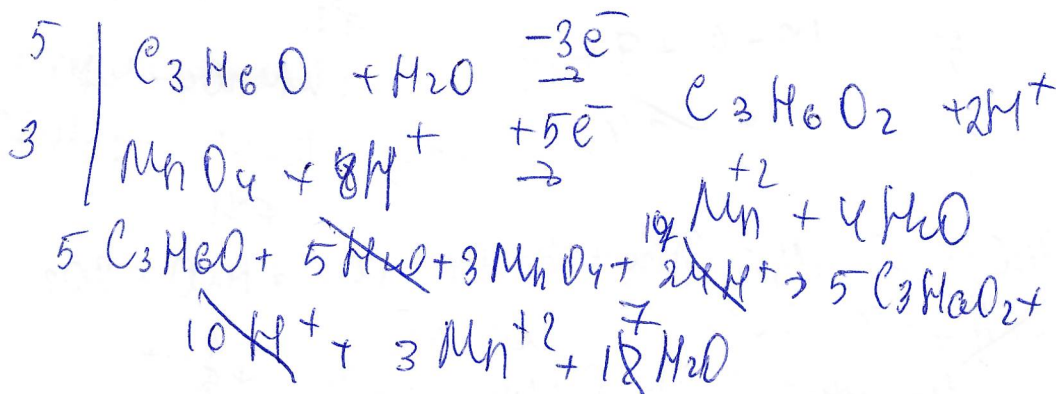 5 | C3H6O + H2O -3e⁻ → C3H6O2 + 2H⁺
3 | MnO4 + 8H⁺ +5e⁻ → Mn⁺² + 4H2O
5 C3H6O + 5H2O + 3MnO4 + 24H⁺ → 5 C3H6O2 +
10H⁺ + 3Mn⁺² + 7 H2O